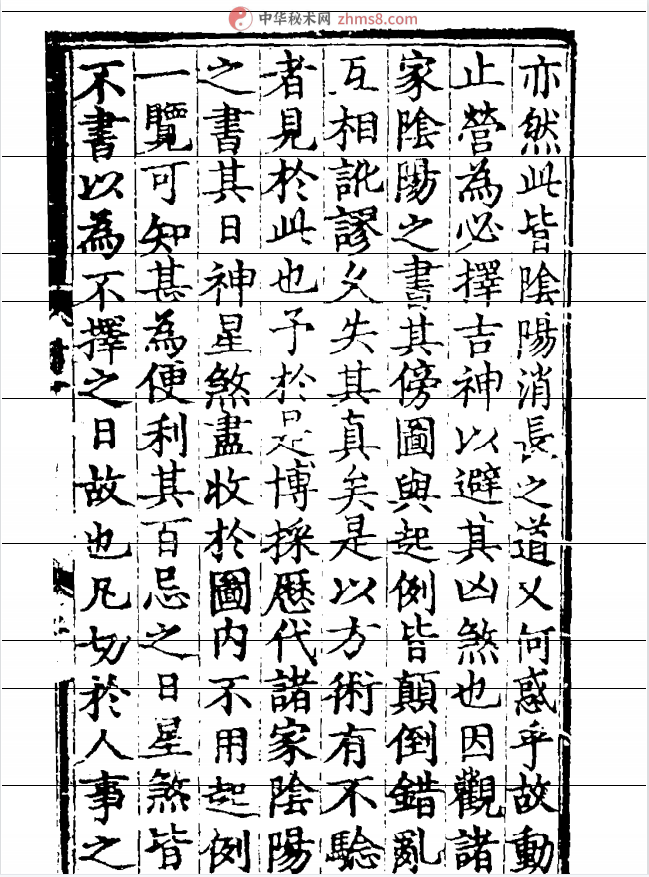 中华秘术网 zhms8.com
亦然此皆陰陽消長之道又何惑乎故動
止營為必擇吉神以避其凶煞也因觀諸
家陰陽之書其傍圖與起例皆顛倒錯亂
互相訛謬久失其真矣是以方術有不驗
者見於此也予於是博採歷代諸家陰陽
之書其日神星煞盡收於圖内不用起例
一覽可知甚為便利其百忌之日星煞皆
不書以為不擇之日故也凡切於人事之